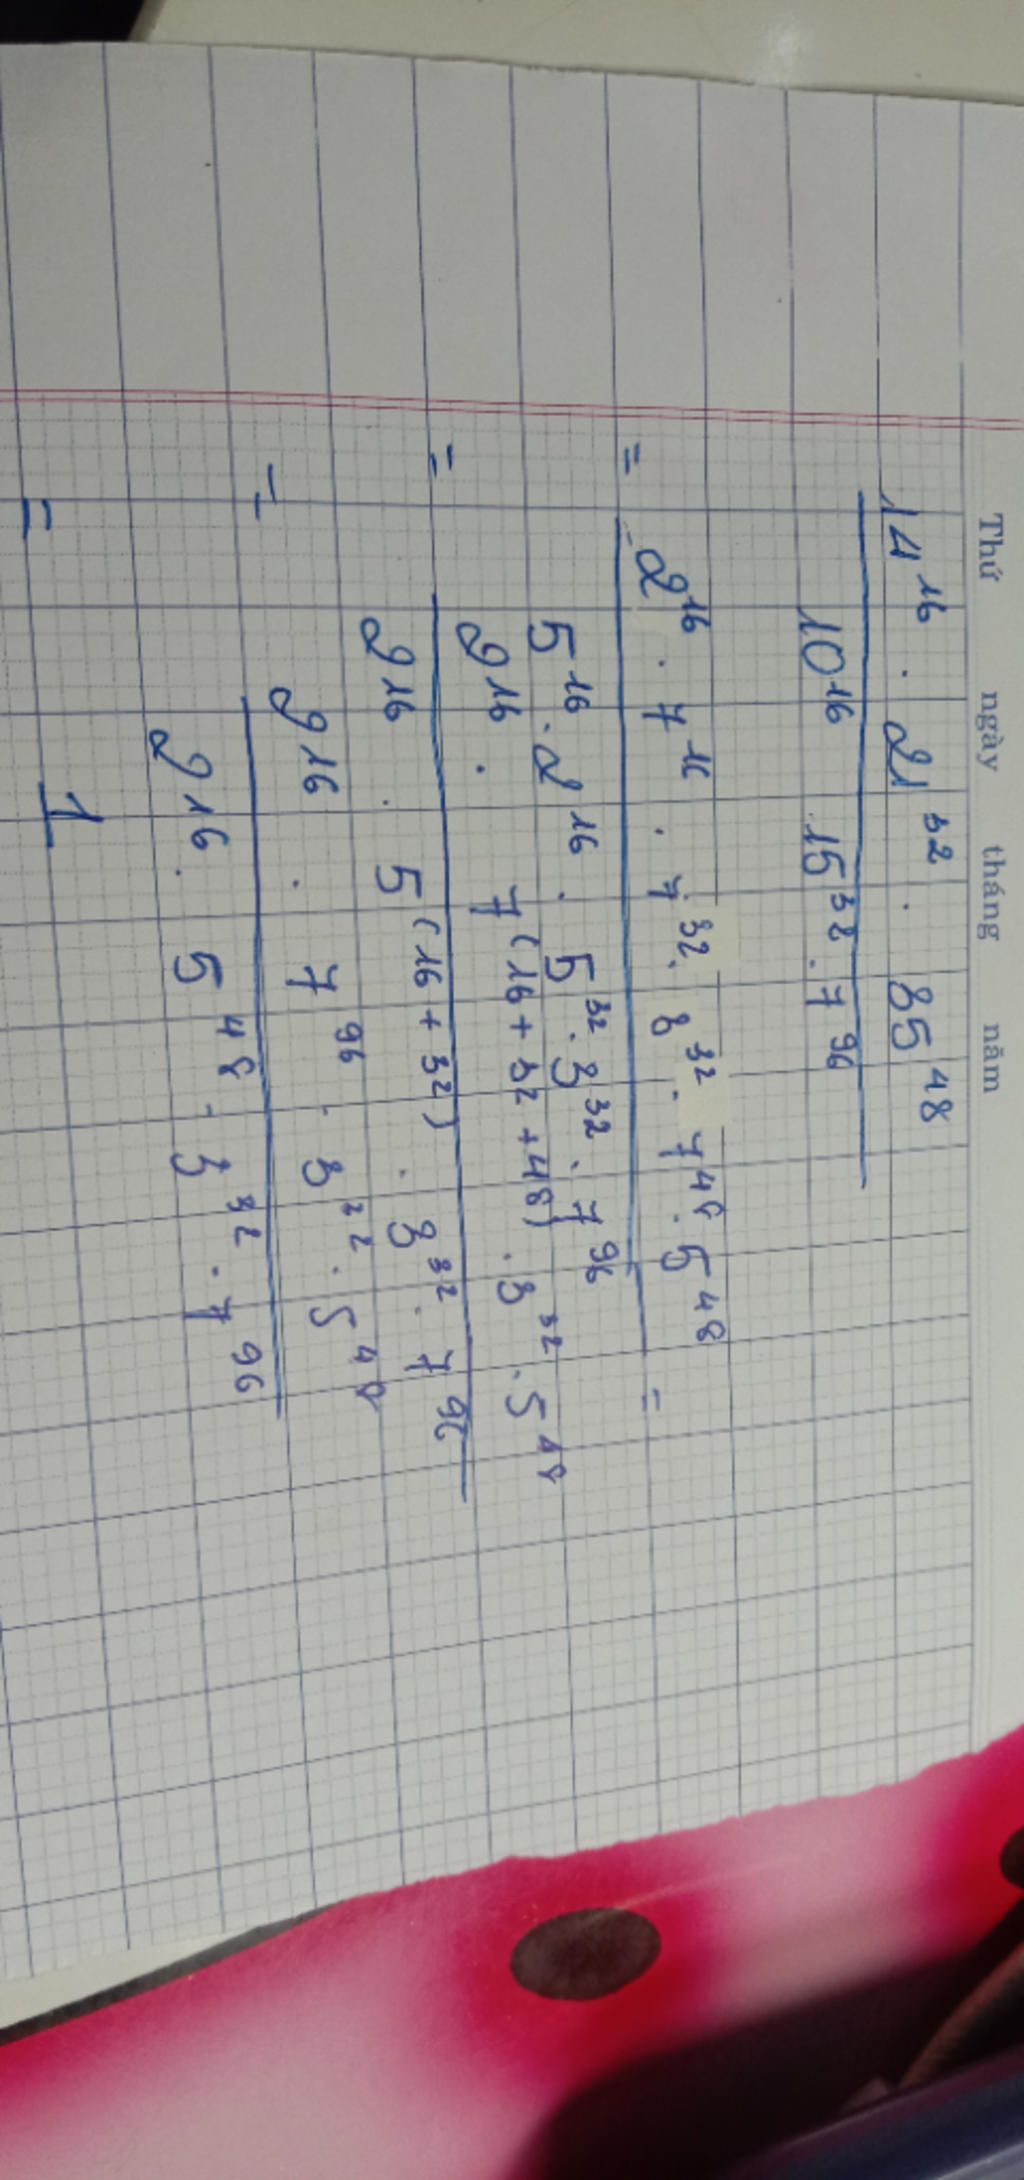 Thứ ngày tháng năm
14^16 . 21^32 . 85^48
10^16 15^32 . 7^96
= 2^16 . 7^16 . 7^32 . 8^32 . 7^48 . 5^48 =
5^16 . 2^16 . 5^32 . 3^32 . 7^96
= 2^16 . 7^(16 + 32 + 48) . 3^32 . 5^48
2^16 . 5^(16 + 32) . 3^32 . 7^96
= 2^16 . 7^96 . 3^32 . 5^48
2^16 . 5^48 . 3^32 . 7^96
= 1